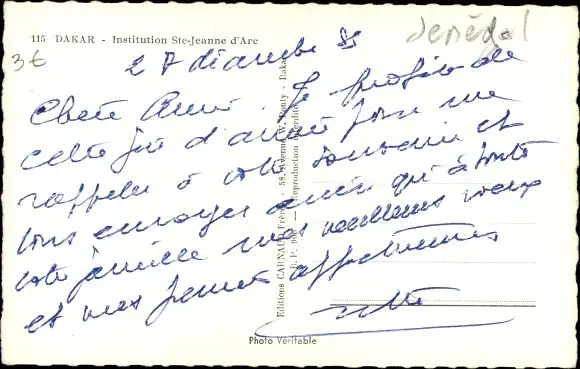 115 DAKAR - Institution Ste-Jeanne d'Arc
Sénégal
3€
27 décembre 55
Chère Amie. Je profite de
cette fin d'année pour me
rappeler à votre souvenir et
vous envoyer ainsi qu'à toute
votre famille mes meilleurs voeux
et mes pensées affectueuses
Editions CARNAUD Frères - 58, Avenue W. Ponty - Dakar
R. P. — Reproduction interdite
Photo Véritable